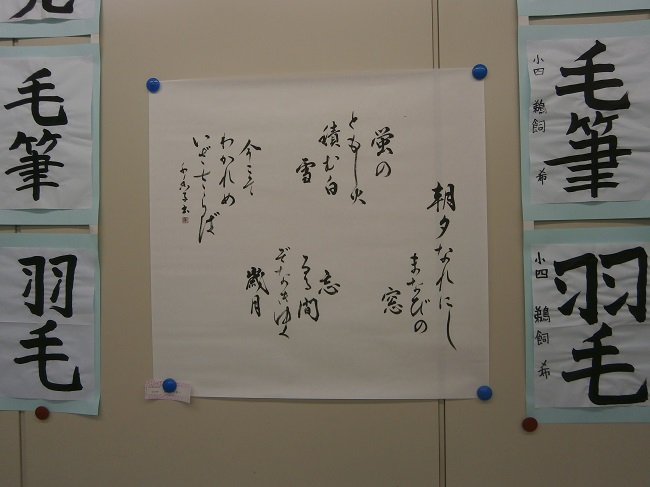 毛筆
小四 鵜飼 希
羽毛
小四 鵜飼 希
朝夕なれにし
まなびの
窓
蛍の
ともし火
積む白
雪
忘
るゝ間
ぞなきゆく
歳月
今こそ
わかれめ
いざさらば
毛筆
羽毛